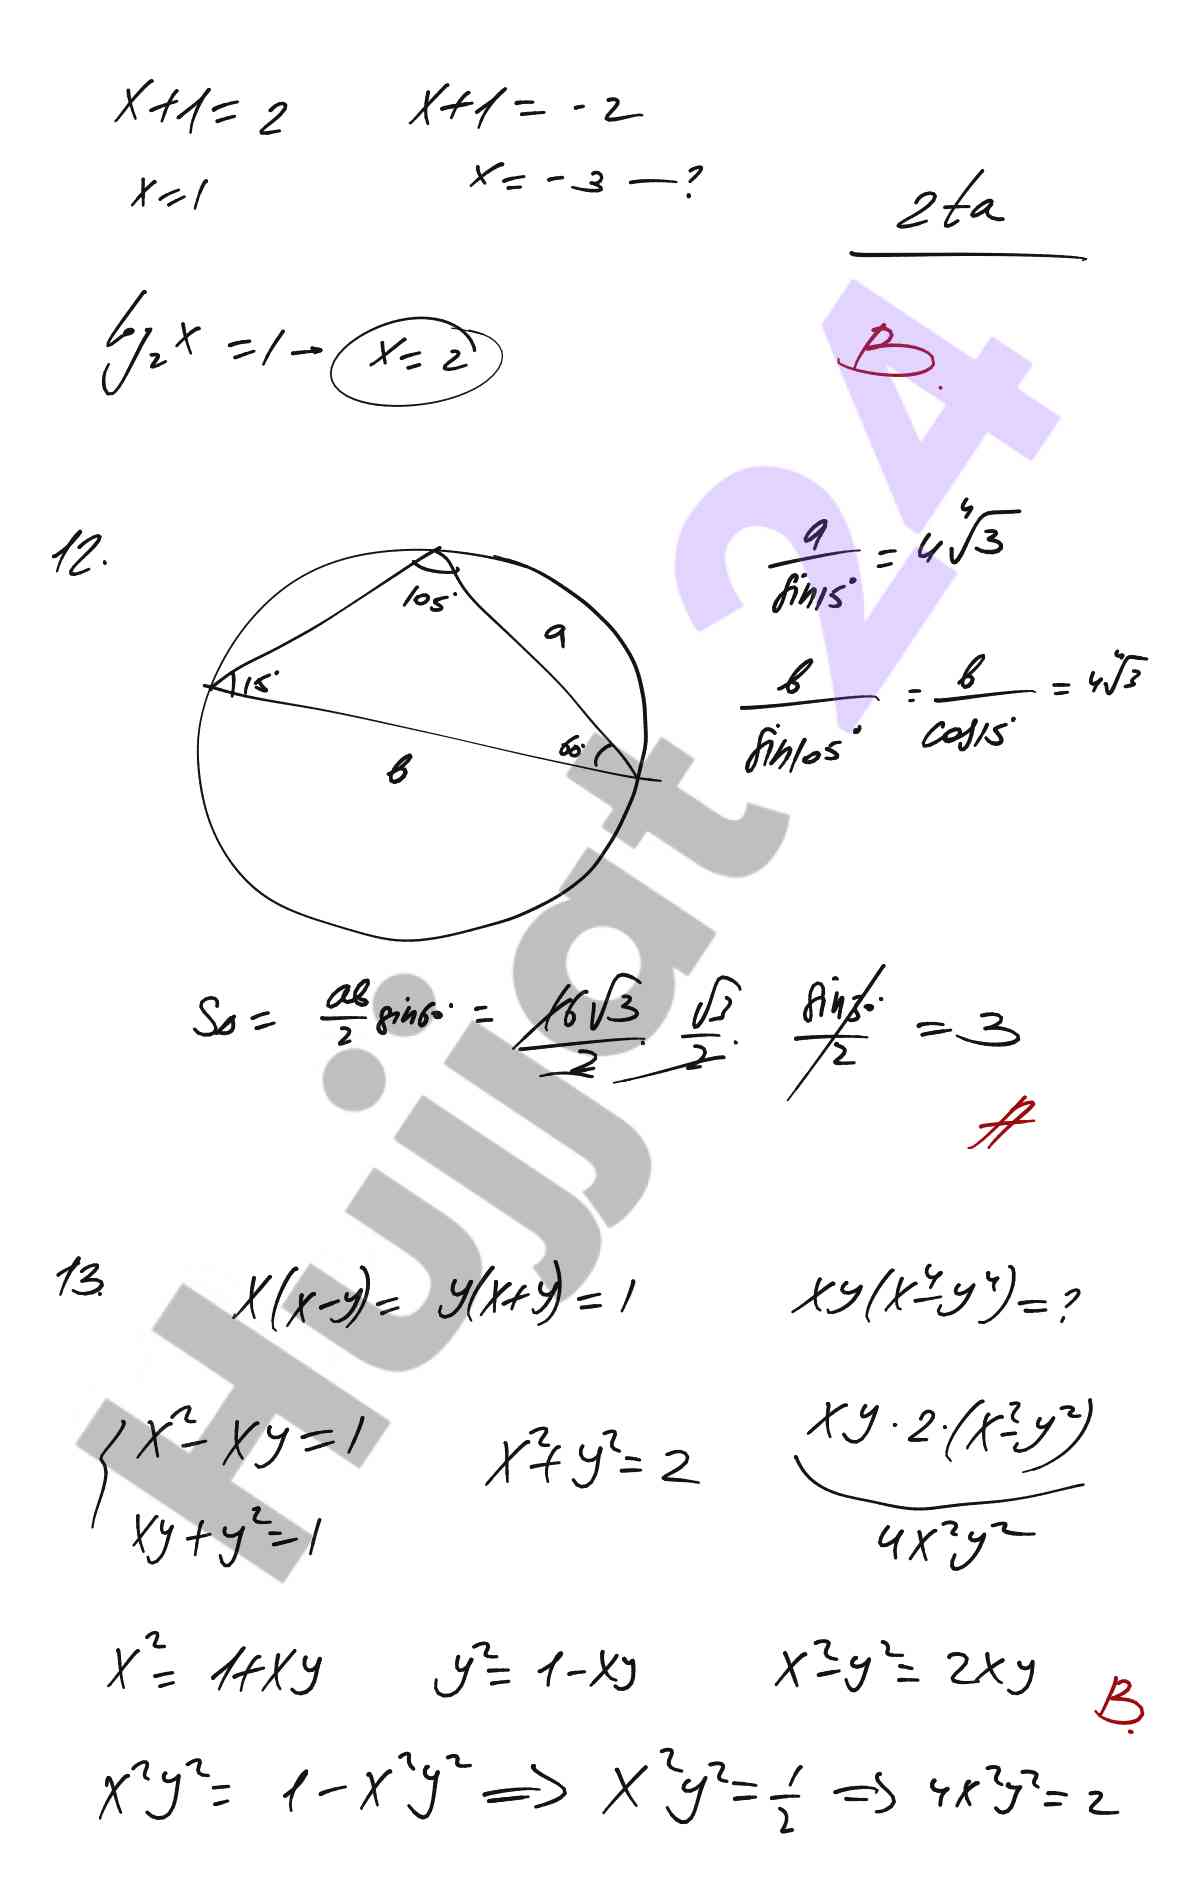 x+1=2 x+1=-2
x=1 x=-3 —?
2ta
log₂x =1 → x=2
B.
12.
105°
15°
60°
a
b
a/sin15° = 4∜3
b/sin105° = b/cos15° = 4∜3
S△ = ab/2 sin60° = 16√3/2 · √3/2 · sin30°/2 = 3
A
13.
x(x-y)= y(x+y)=1 xy(x⁴-y⁴)=?
{ x²-xy=1 x²+y²=2 xy·2·(x²-y²)
xy+y²=1 4x²y²
x²= 1+xy y²= 1-xy x²-y²= 2xy
B.
x²y²= 1-x²y² ⇒ x²y²=1/2 ⇒ 4x²y²=2
Hujjat 24